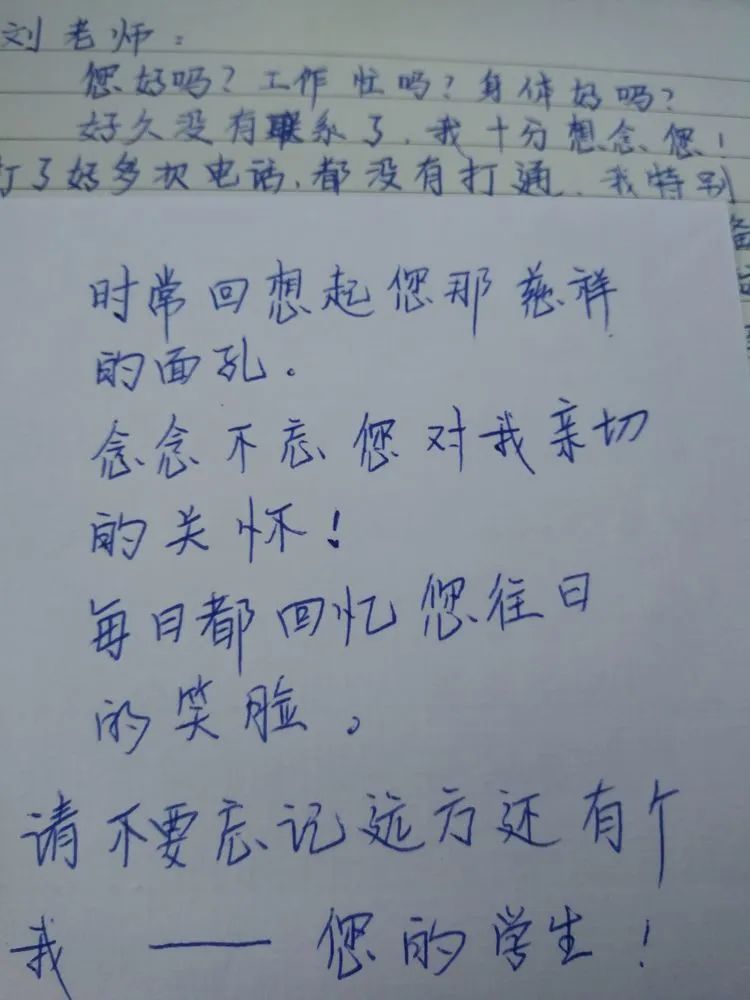 刘老师:
您好吗?工作忙吗?身体好吗?
好久没有联系了,我十分想念您!
打了好多次电话,都没有打通,我特别
时常回想起您那慈祥
的面孔.
念念不忘您对我亲切
的关怀!
每日都回忆您往日
的笑脸。
请不要忘记远方还有个
我——您的学生!